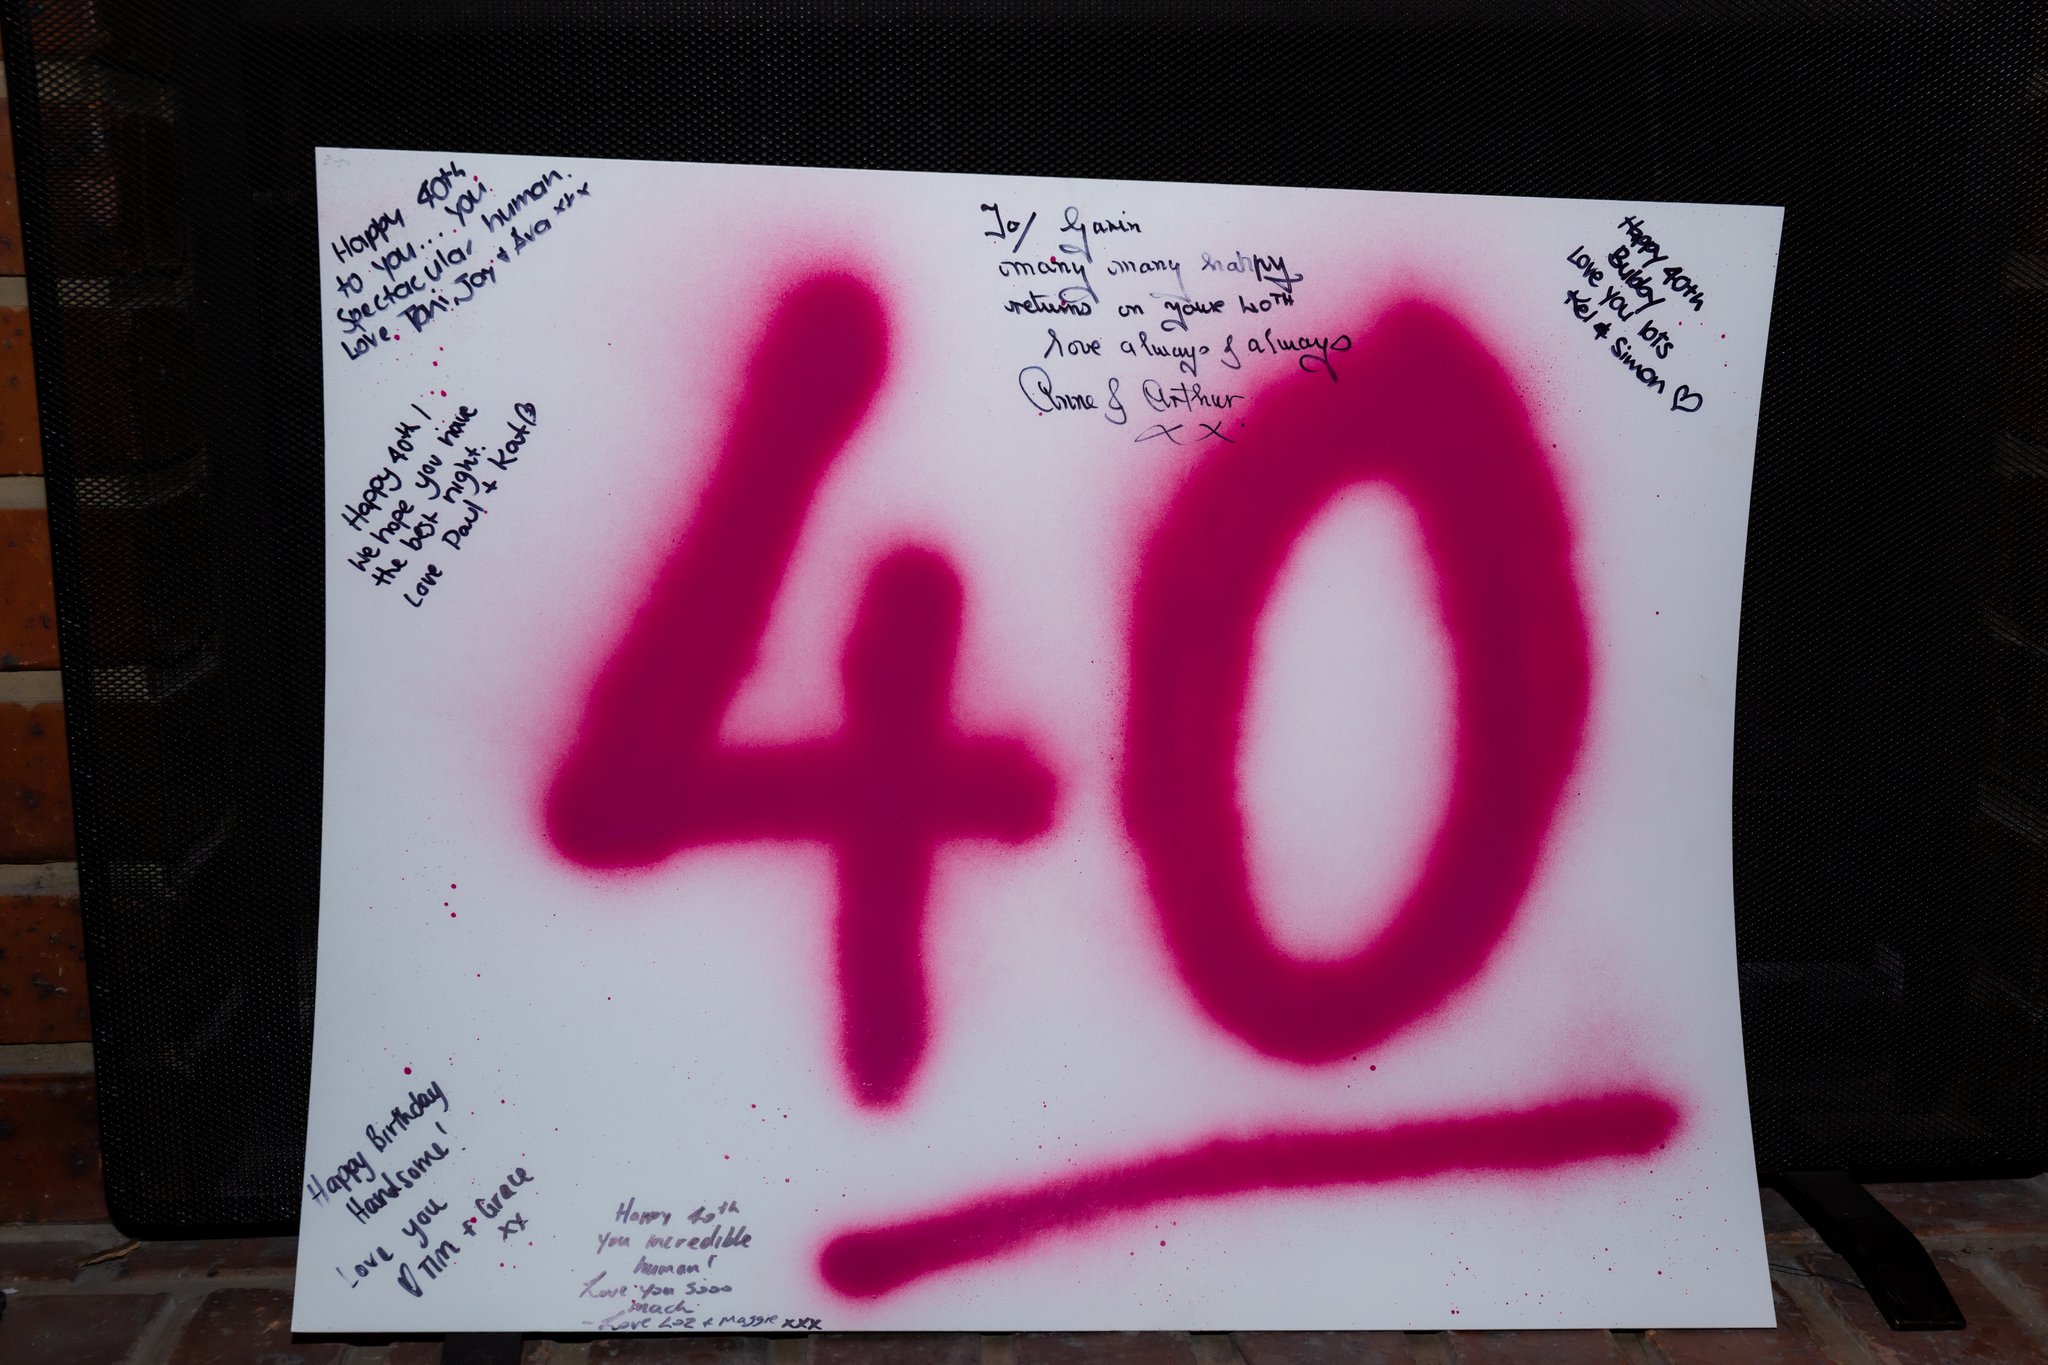 Happy 40th
to you.... you
spectacular human.
Love Toni, Joy + Ava xxx
Happy 40th!
We hope you have
the best night.
Love Paul + Kat
To/ Garin
many many happy
returns on youre 40TH
love always & always
Anne & Arthur
xx.
Happy 40th
Love you lots
Kel & Simon
40
Happy Birthday
Handsome!
Love you
Tim + Grace
xx
Happy 40th
you incredible
human!
Love you sooo
much
- Love Loz + Maggie xxx